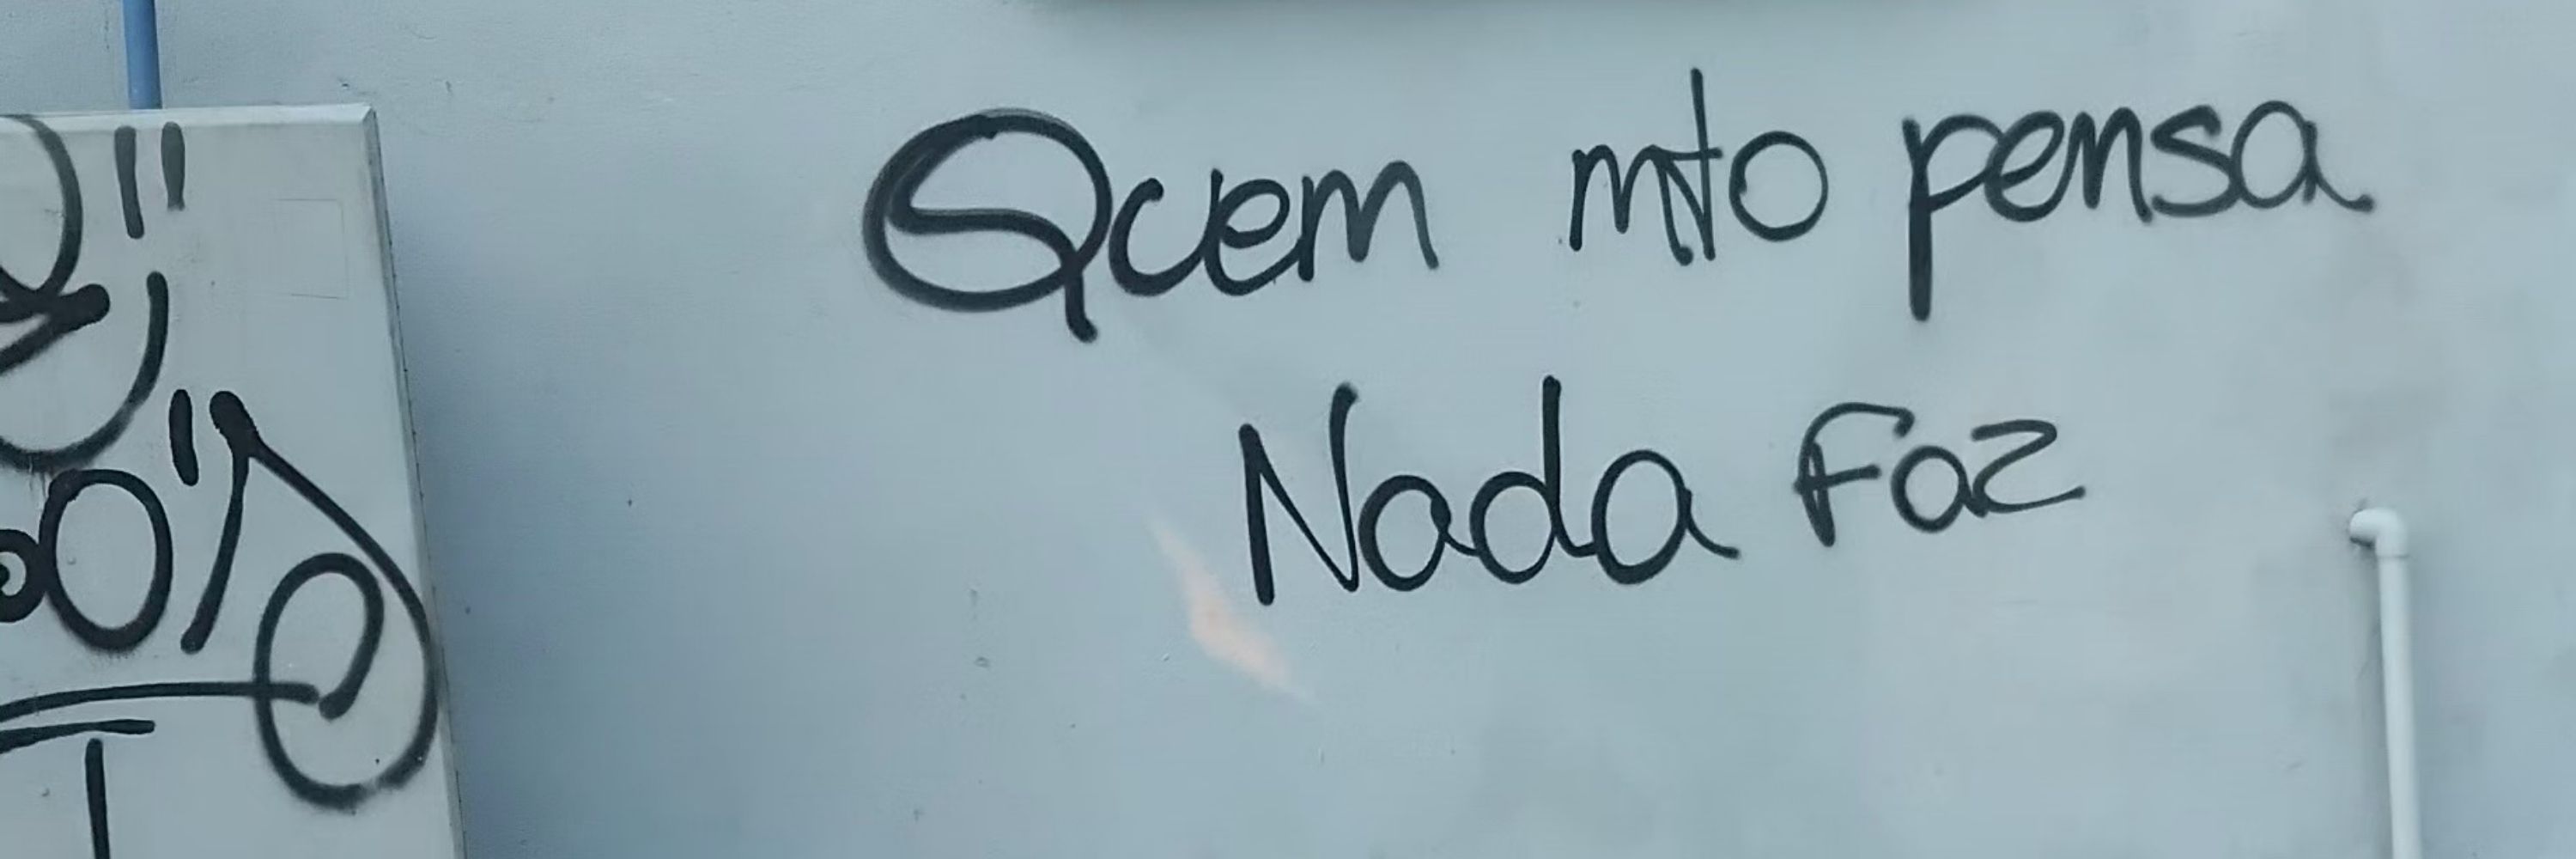 Quem mto pensa
Nada Faz